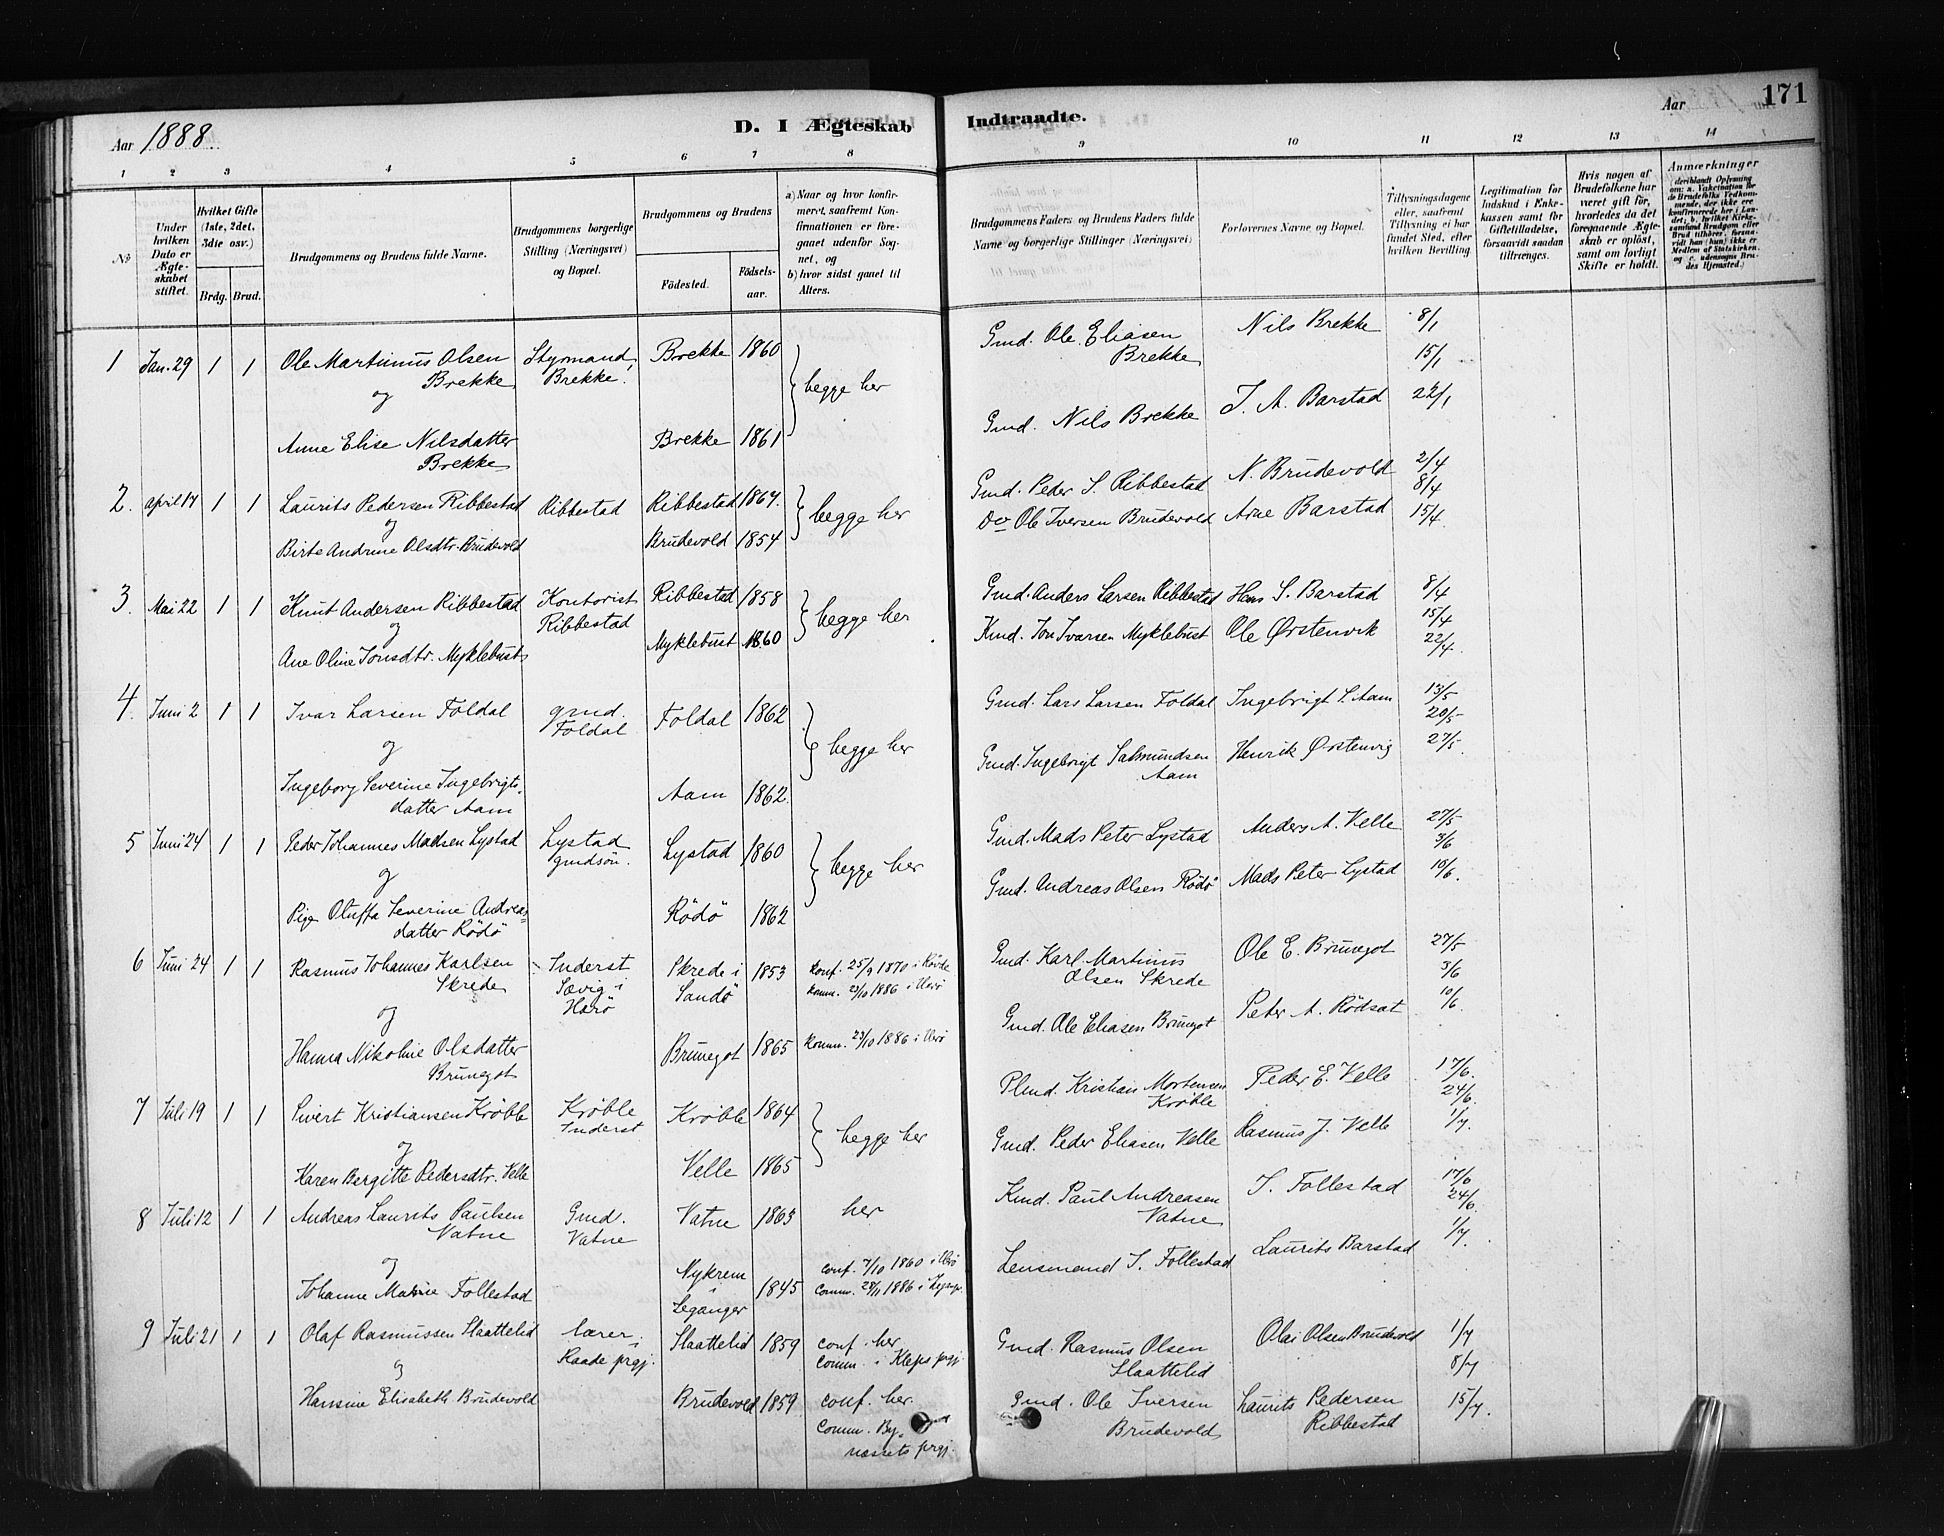 Aar 1888.
D. I Ægteskab
Indtraadte.
Aar
171
1 2 3 4 5 6 7 8
9 10 11 12 13 14
No
Under hvilken Dato er Ægteskabet stiftet.
Hvilket Gifte (1ste, 2det, 3die osv.)
Brdg. Brud.
Brudgommens og Brudens fulde Navne.
Brudgommens borgerlige Stilling (Næringsvei) og Bopæl.
Brudgommens og Brudens
Födested.
Födsels-aar.
a) Naar og hvor konfirmeret, saafremt Konfirmationen er foregaaet udenfor Sognet, og
b) hvor sidst gaaet til Alters.
Brudgommens Faders og Brudens Faders fulde Navne og borgerlige Stillinger (Næringsvei)
Forlovernes Navne og Bopæl.
Tillysningsdagene eller, saafremt Tillysning ei har fundet Sted, efter hvilken Bevilling.
Legitimation for Indskud i Enkekassen samt for Giftetilladelse, forsaavidt saadan tiltrænges.
Hvis nogen af Brudefolkene har været gift før, hvorledes da det foregaaende Ægteskab er opløst, samt om lovligt Skifte er holdt.
Anmærkninger
1 Jan. 29 1 1 Ole Martinus Olsen Styrmand, Brekke 1860
Brekke Brekke.
og
begge her
Anne Elise Nilsdatter Brekke 1861
Brekke
Gmd. Ole Eliasen Nils Brekke 8/1
Brekke 15/1
Gmd. Nils Brekke J. A. Barstad 22/1
2. April 17 1 1 Laurits Pedersen Ribbestad Ribbestad Ribbestad 1864.
og
begge her
Birte Andrine Olsdtr. Brudevold Brudevold 1854
Gmd. Peder S. Ribbestad N. Brudevold 2/4
8/4
Do Ole Iversen Brudevold Arne Barstad 15/4.
3. Mai 22 1 1 Knut Andersen Ribbestad Kontorist Ribbestad 1858
og Ribbestad
begge her
Ane Oline Jonsdtr. Myklebust Myklebust 1860
Gmd. Anders Larsen Ribbestad Hans S. Barstad 8/4
15/4
Kmd. Jon Ivarsen Myklebust Ole Ørstenvik 22/4.
4. Juni 2 1 1 Ivar Larsen Foldal gmd. Foldal 1862
Foldal
og
begge her
Ingeborg Severine Ingebrigts- Aam 1862.
datter Aam
Gmd. Lars Larsen Foldal Ingebrigt S. Aam 13/5
20/5
Gmd. Ingebrigt Salmundsen Henrik Ørstenvig 27/5.
Aam
5 Juni 24 1 1 Peder Johannes Madsen Lystad Lystad Lystad 1860
gmdsön.
og
begge her
Pige Oluffa Severine Andreas- Rödö 1862
datter Rödö
Gmd. Mads Peter Lystad Anders A. Velle 27/5
3/6
Gmd. Andreas Olsen Rödö Mads Peter Lystad 10/6.
6 Juni 24 1 1 Rasmus Johannes Karlsen Inderst Skrede i 1853 konf. 25/9 1870 i Rovde
Skrede Sævig i Sandö komm. 23/10 1886 i Herö
og Harö
Hanna Nikoline Olsdatter Brunegot 1865 komm. 23/10 1886 i Herö
Brunegot
Gmd. Karl Martinus Ole E. Brunegot 27/5
Olsen Skrede 3/6
Gmd. Ole Eliasen Brunegot Peter A. Rödsat 10/6.
7 Juli 19 1 1 Sivert Kristiansen Kröble Kröble Kröble 1864
Inderst
og
begge her
Karen Bergitte Pedersdtr. Velle Velle 1865
Plmd. Kristian Mortensen Peder E. Velle 17/6.
Kröble 24/6.
Gmd. Peder Eliasen Velle Rasmus J. Velle 1/7.
8 Juli 12 1 1 Andreas Laurits Paulsen Gmd. Vatne 1863 her
Vatne Vatne
og
Johanne Marie Follestad Nykrem 1845 conf. 7/10 1860 i Herö
Leganger comm. 28/11 1886 i
Kmd. Paul Andreasen S. Follestad 17/6
Vatne 24/6.
Lensmand S. Follestad Laurits Barstad 1/7.
9 Juli 21 1 1 Olaf Rasmussen Slaattelid lærer i Slaattelid 1859 conf. her
og Raade prgj. comm. i Kleps prgj
Hansine Elisabeth Brudevold Brudevold 1859 conf. her.
comm. By-
næssets prgj.
Gmd. Rasmus Olsen Olai Olsen Brudevold 1/7
Slaattelid 8/7
Gmd. Ole Iversen Laurits Pedersen 15/7.
Brudevold Ribbestad